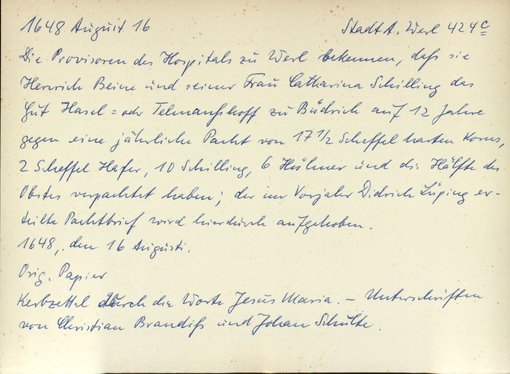 1648 August 16 Stadt A. Werl 424c
Die Provisoren des Hospitals zu Werl bekennen, daß sie
Henrich Beine und seiner Frau Catharina Schilling das
Gut Hasel= oder Telmanshoff zu Büdrich auf 12 Jahre
gegen eine jährliche Pacht von 17 1/2 Scheffel harten Korns,
2 Scheffel Hafer, 10 Schilling, 6 Hühner und die Hälfte des
Obstes verpachtet haben; der im Vorjahr Didrich Lüping er-
teilte Pachtbrief wird hierdurch aufgehoben.
1648, den 16 Augusti.
Orig. Papier
Kerbzettel durch die Worte Jesus Maria. - Unterschriften
von Christian Brandiß und Johan Schulte.